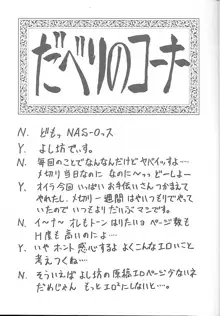 だべりのコーナー
N. どもッ NAS-Oッス
Y. よし坊でぃす。
N. 毎回のことでなんなんだけどヤバイッすよ‥‥
メカリ当日なのに なのに〜ッ どーしよー
Y. オイラ今回 いっぱいお手伝いさんつかまえて
やれたし、メカリ一週間はやいつもりでやって
いたのでいつもよりだいぶマシです。
N. イーナー オレもトーンはりたいョ ページ数も
H度も高いのによ‥‥
Y. いや ホント 感心するよ よくこんなエロいこと
考えつくね‥‥
N. そういえば よし坊の原稿エロページ少ないネ
だめじゃん もっとエロエロにしないと‥‥。